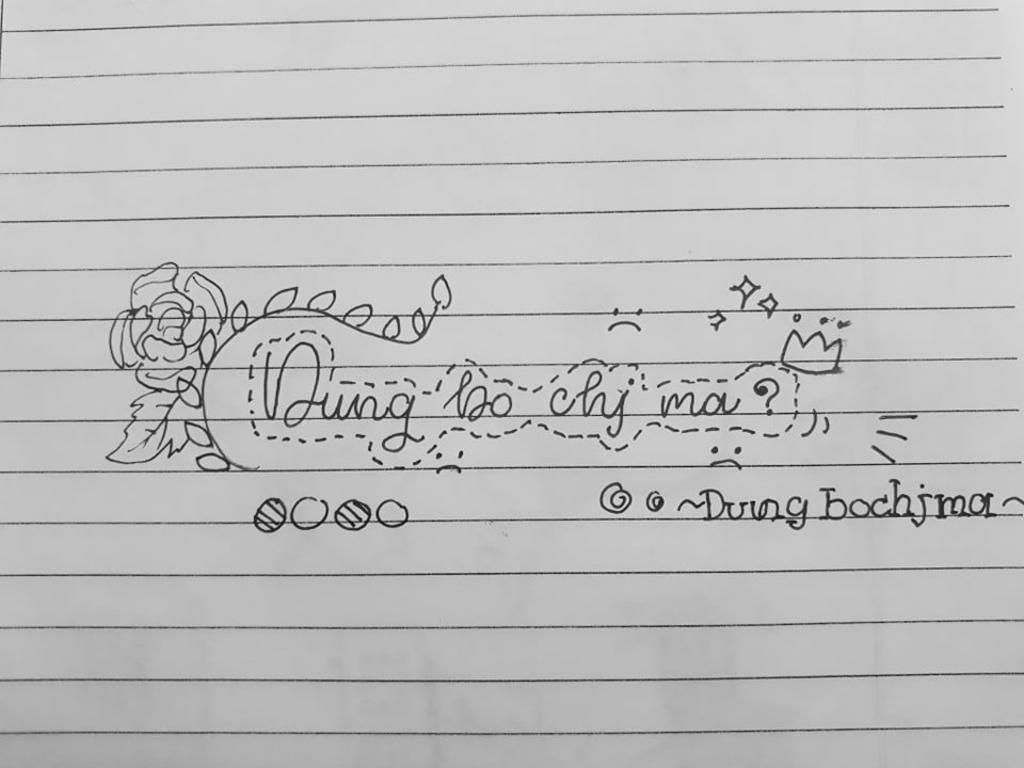 Dung bo chj ma?
~Dung bochjma~